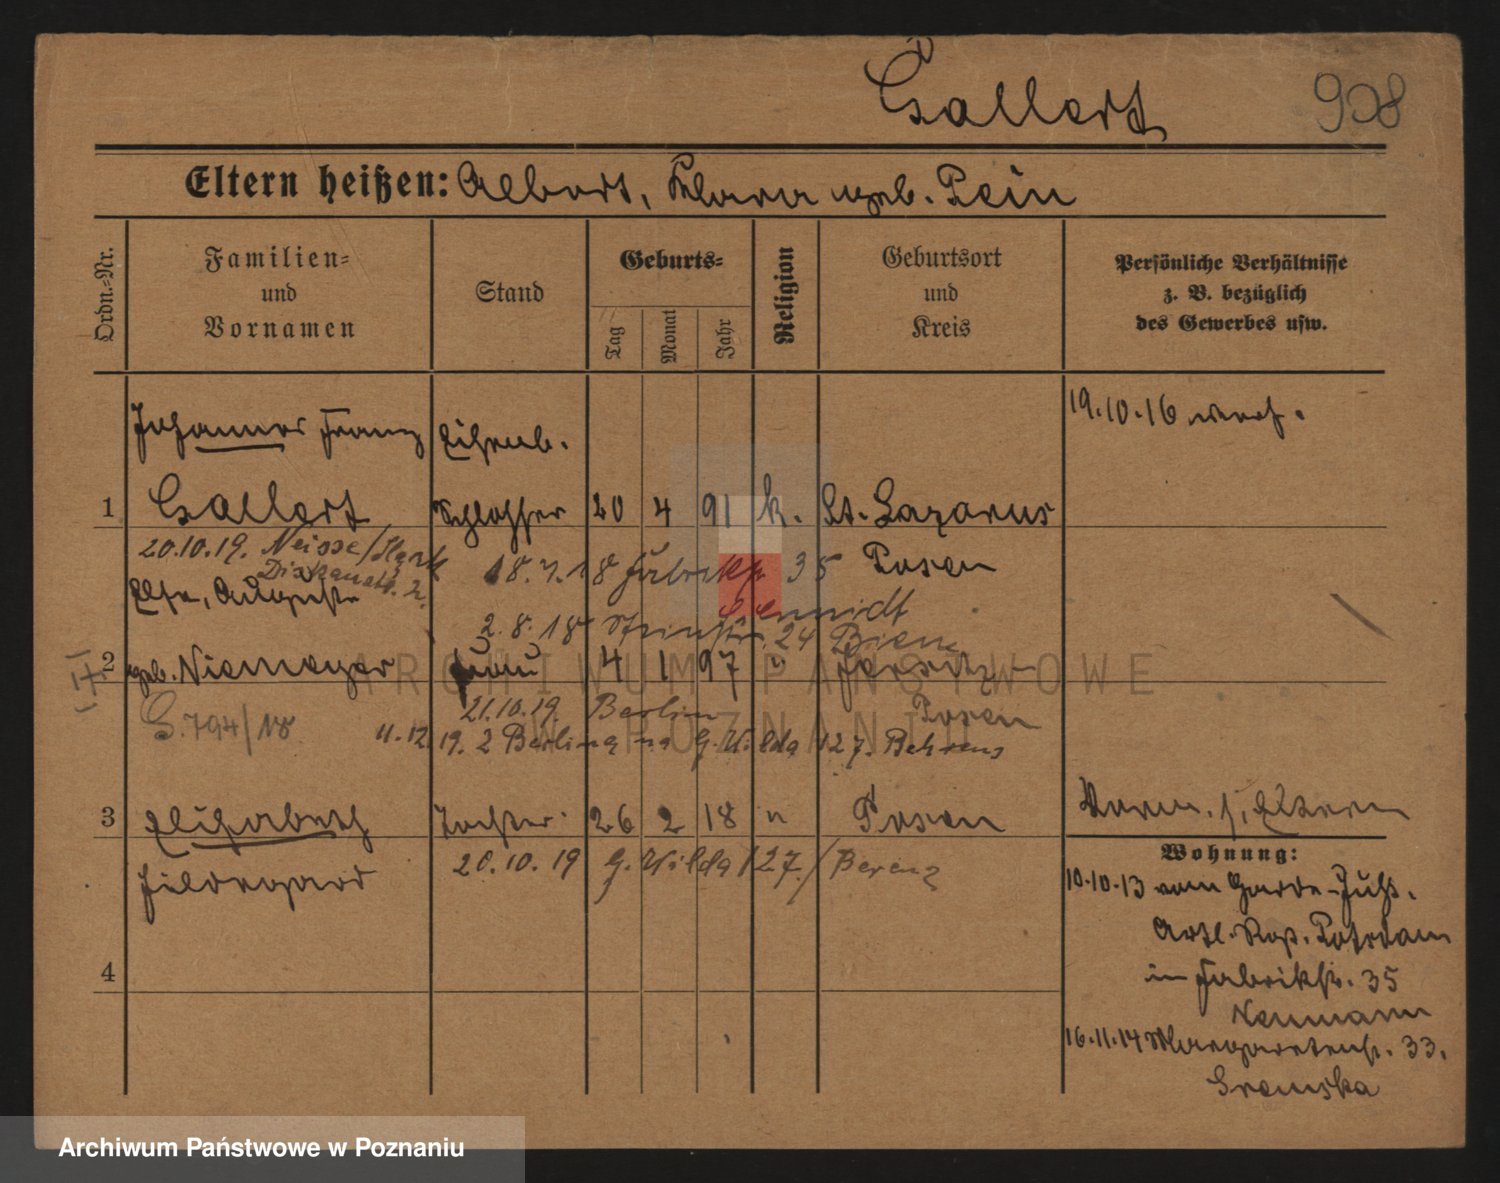 Gallert
908
Eltern heißen: Albert, Klara geb. Pein
Ordn.-Nr.
Familien-
und
Vornamen
Stand
Geburts-
Tag
Monat
Jahr
Religion
Geburtsort
und
Kreis
Persönliche Verhältnisse
z. B. bezüglich
des Gewerbes usw.
Johannes Franz Eisenb.
19.10.16 verh.
1 Gallert Schlosser 20 4 91 k. St. Lazarus
20.10.19. Neisse/
18.7.18 Fabrikstr. 35 Posen
Else, Auguste
Schmidt
2.8.18 24
2 geb. Niemeyer Frau 4 1 97 " Jersitz
21.10.19. Berlin Posen
G. 794/18
11.12.19. 2 Berlin na G. Wilda 127. Behrens
3 Elisabeth Tochter 26 2 18 " Posen
Verm. s. Eltern
20.10.19 G. Wilda 127./ Berenz
Hildegard
Wohnung:
10.10.13 vom Garde-Fuß.
Artl. Rgt. Potsdam
4
in Fabrikstr. 35
Neumann
16.11.14 Margaretenstr. 33.
Gremska
ARCHIWUM PAŃSTWOWE
W POZNANIU
Archiwum Państwowe w Poznaniu